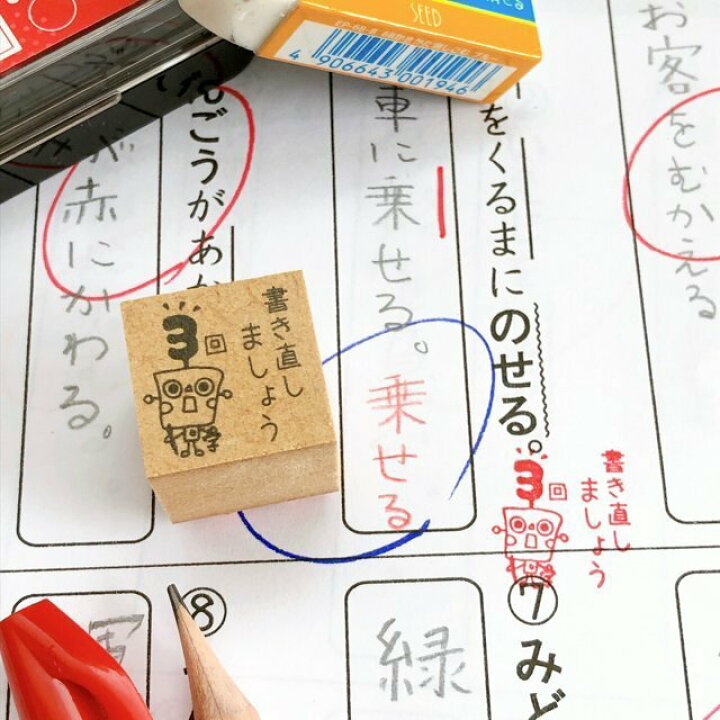 お客をむかえる
をくるまにのせる。
書き直し
ましょう
3回
⑦みど
車に乗せる。
乗せる
緑
SEED
4 906643 001946
書き直し
ましょう
3回
んごうがあか
⑧
が赤にかわる。